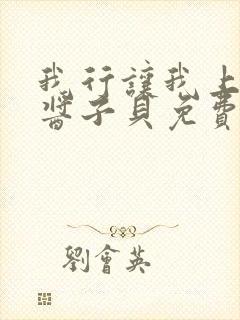 我行讓我上
醬子貝免費
劉會英